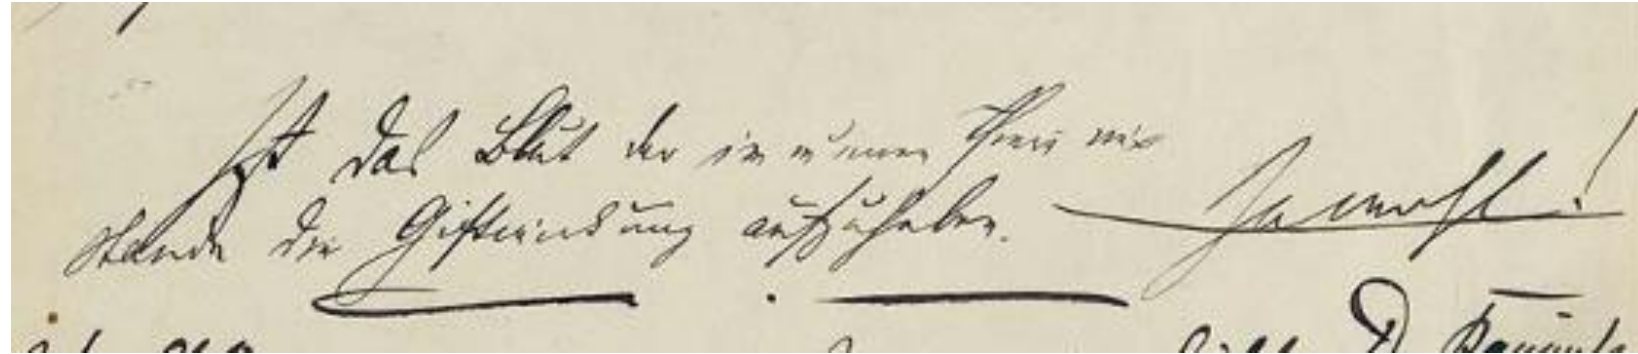 Ist das Blut der immunen Thiere im
stande die Giftwirkung aufzuheben. Jawohl!